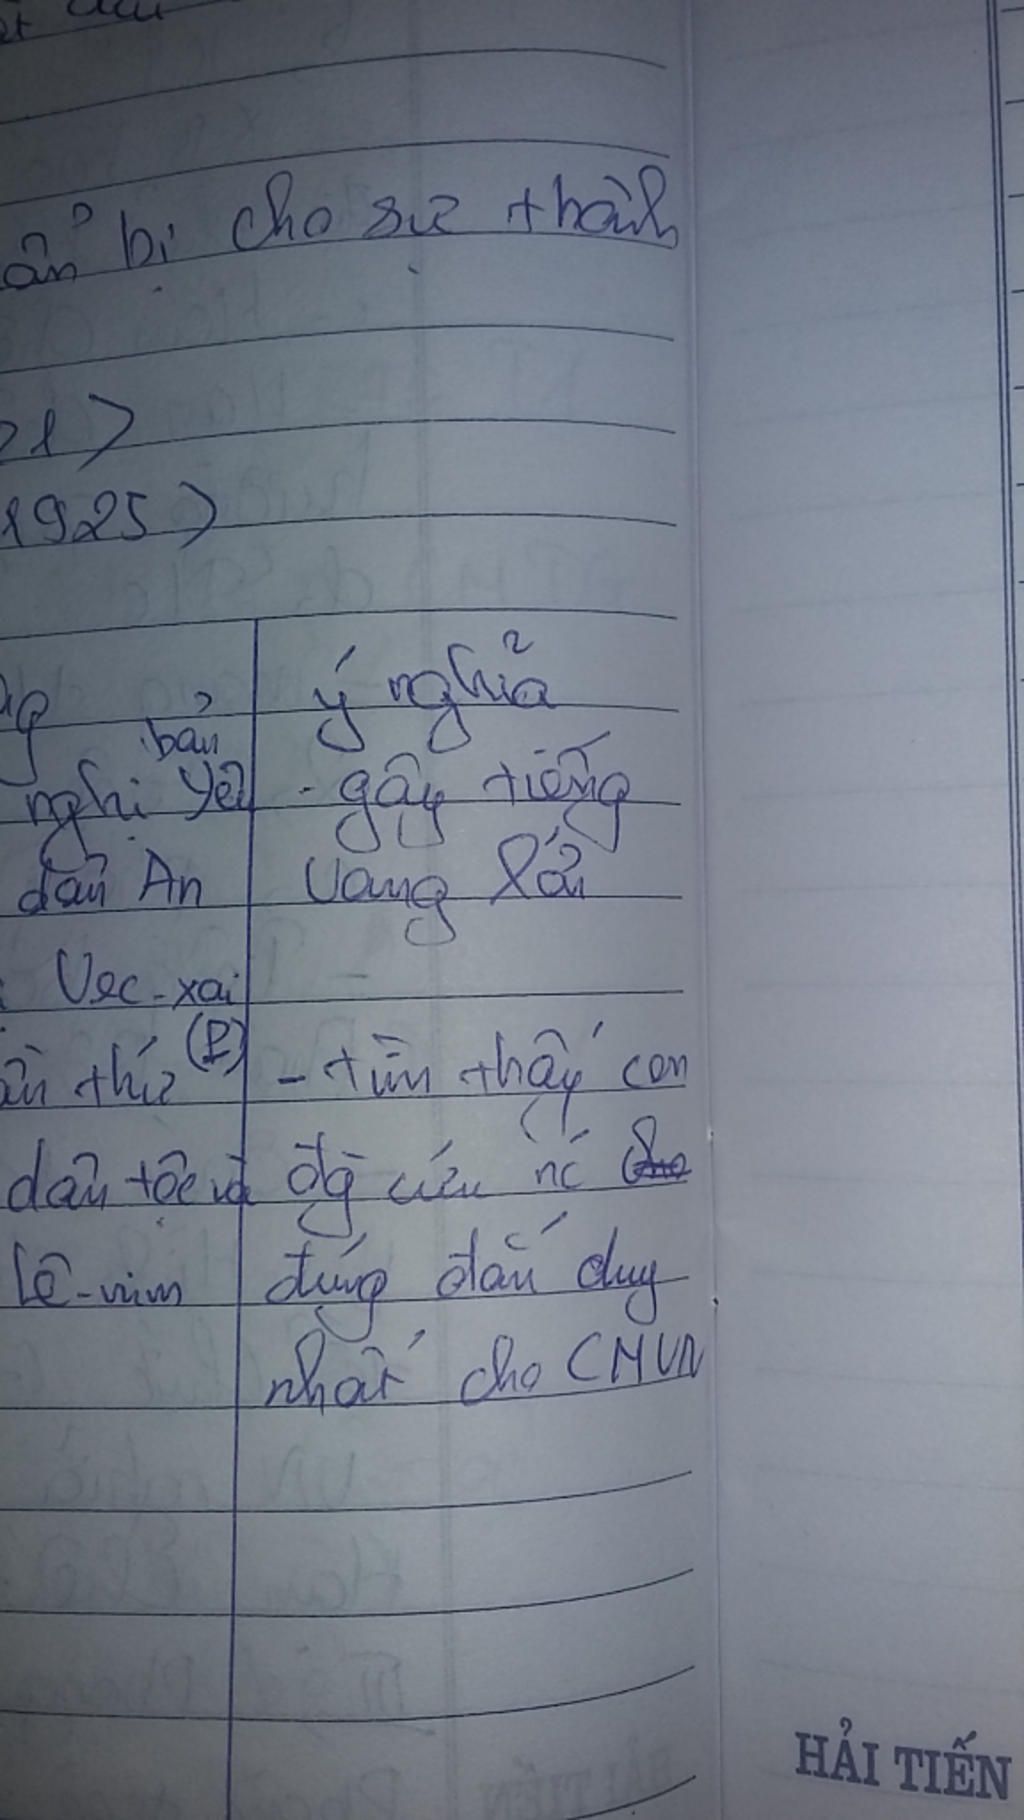 ẩn bị cho sự thành
21>
1925>
ý nghĩa
bản
nghị yêu - gây tiếng
dân An vang lớn
Vec-xai
ận thứ (I) - tìm thấy con
dân tộc và đg cứu nc
Lê-nim đúng đắn duy
nhất cho CMVN
HẢI TIẾN